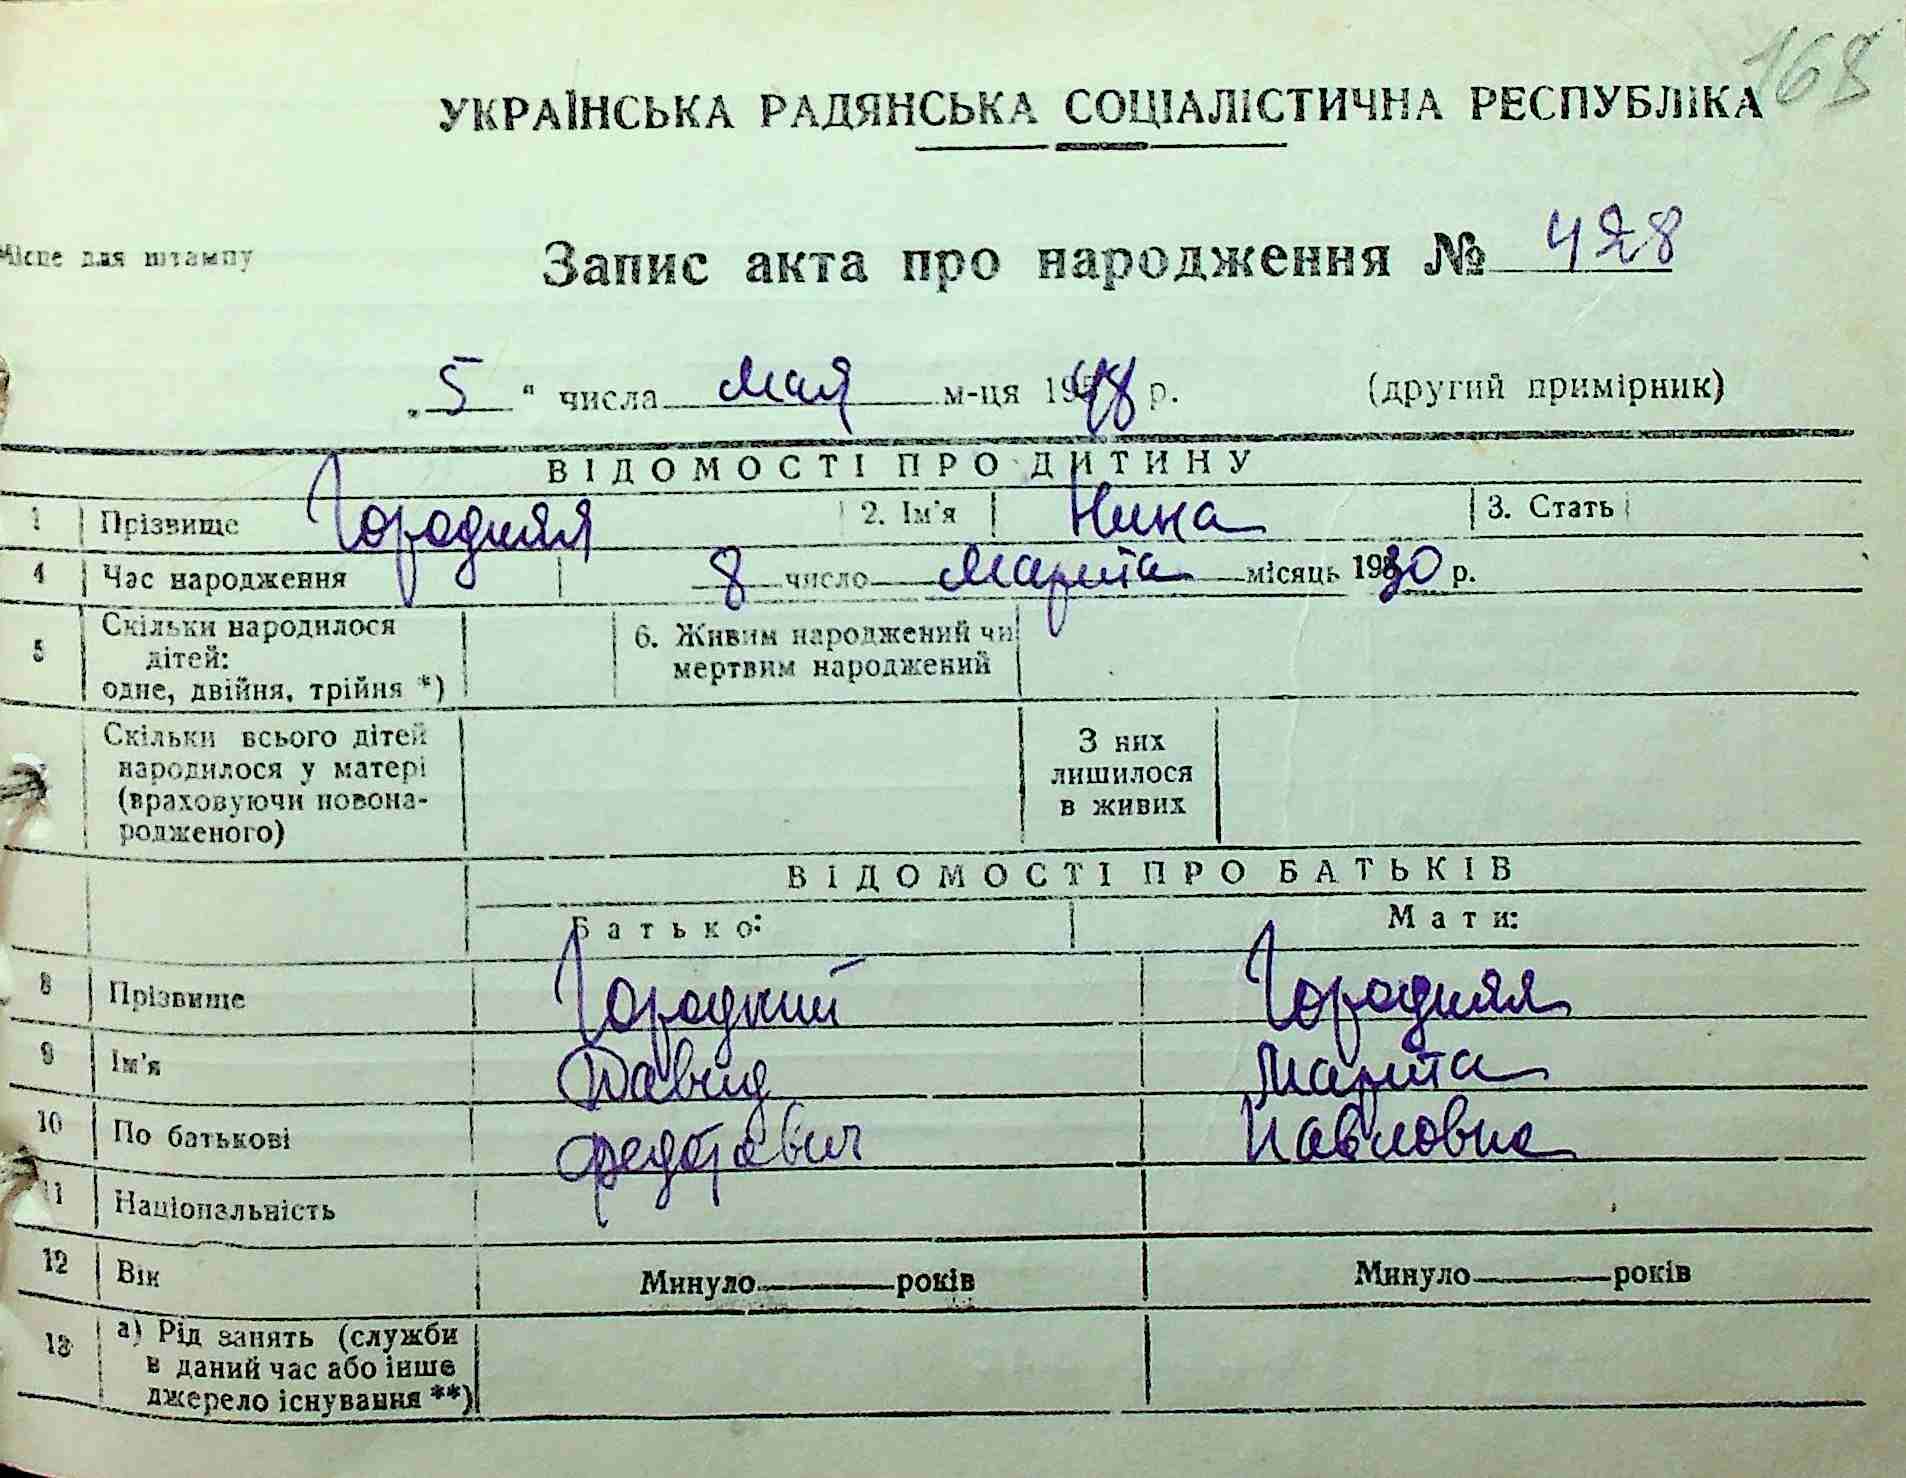 168
УКРАЇНСЬКА РАДЯНСЬКА СОЦІАЛІСТИЧНА РЕСПУБЛІКА
Місце для штампу
Запис акта про народження № 428
„ 5 “ числа мая м-ця 1948 р. (другий примірник)
ВІДОМОСТІ ПРО ДИТИНУ
1 Прізвище Городняя 2. Ім'я Нина 3. Стать
4 Час народження 8 число марта місяць 1930 р.
5 Скільки народилося дітей: одне, двійня, трійня *) 6. Живим народжений чи мертвим народжений
Скільки всього дітей народилося у матері (враховуючи новона-родженого) З них лишилося в живих
ВІДОМОСТІ ПРО БАТЬКІВ
Батько: Мати:
8 Прізвище Городний Городняя
9 Ім'я Давид Марта
10 По батькові Павловна
11 Національність
12 Вік Минуло років Минуло років
13 а) Рід занять (служби в даний час або інше джерело існування **)